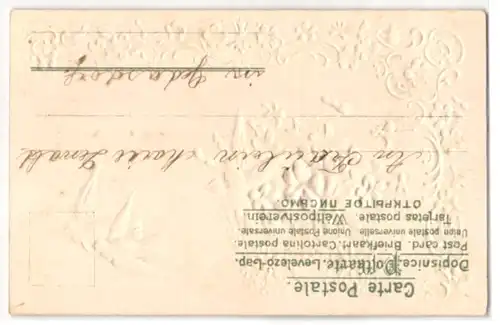 Carte Postale.
Dopisnice. Postkarte. Levelezo-Lap.
Post card. Briefkaart. Cartolina postale.
Union postale universelle. Unione Postale universale.
Tarjetas postale. Weltpostverein.
ОТКРЫТОЕ ПИСЬМО.
An Fräulein Marie
in